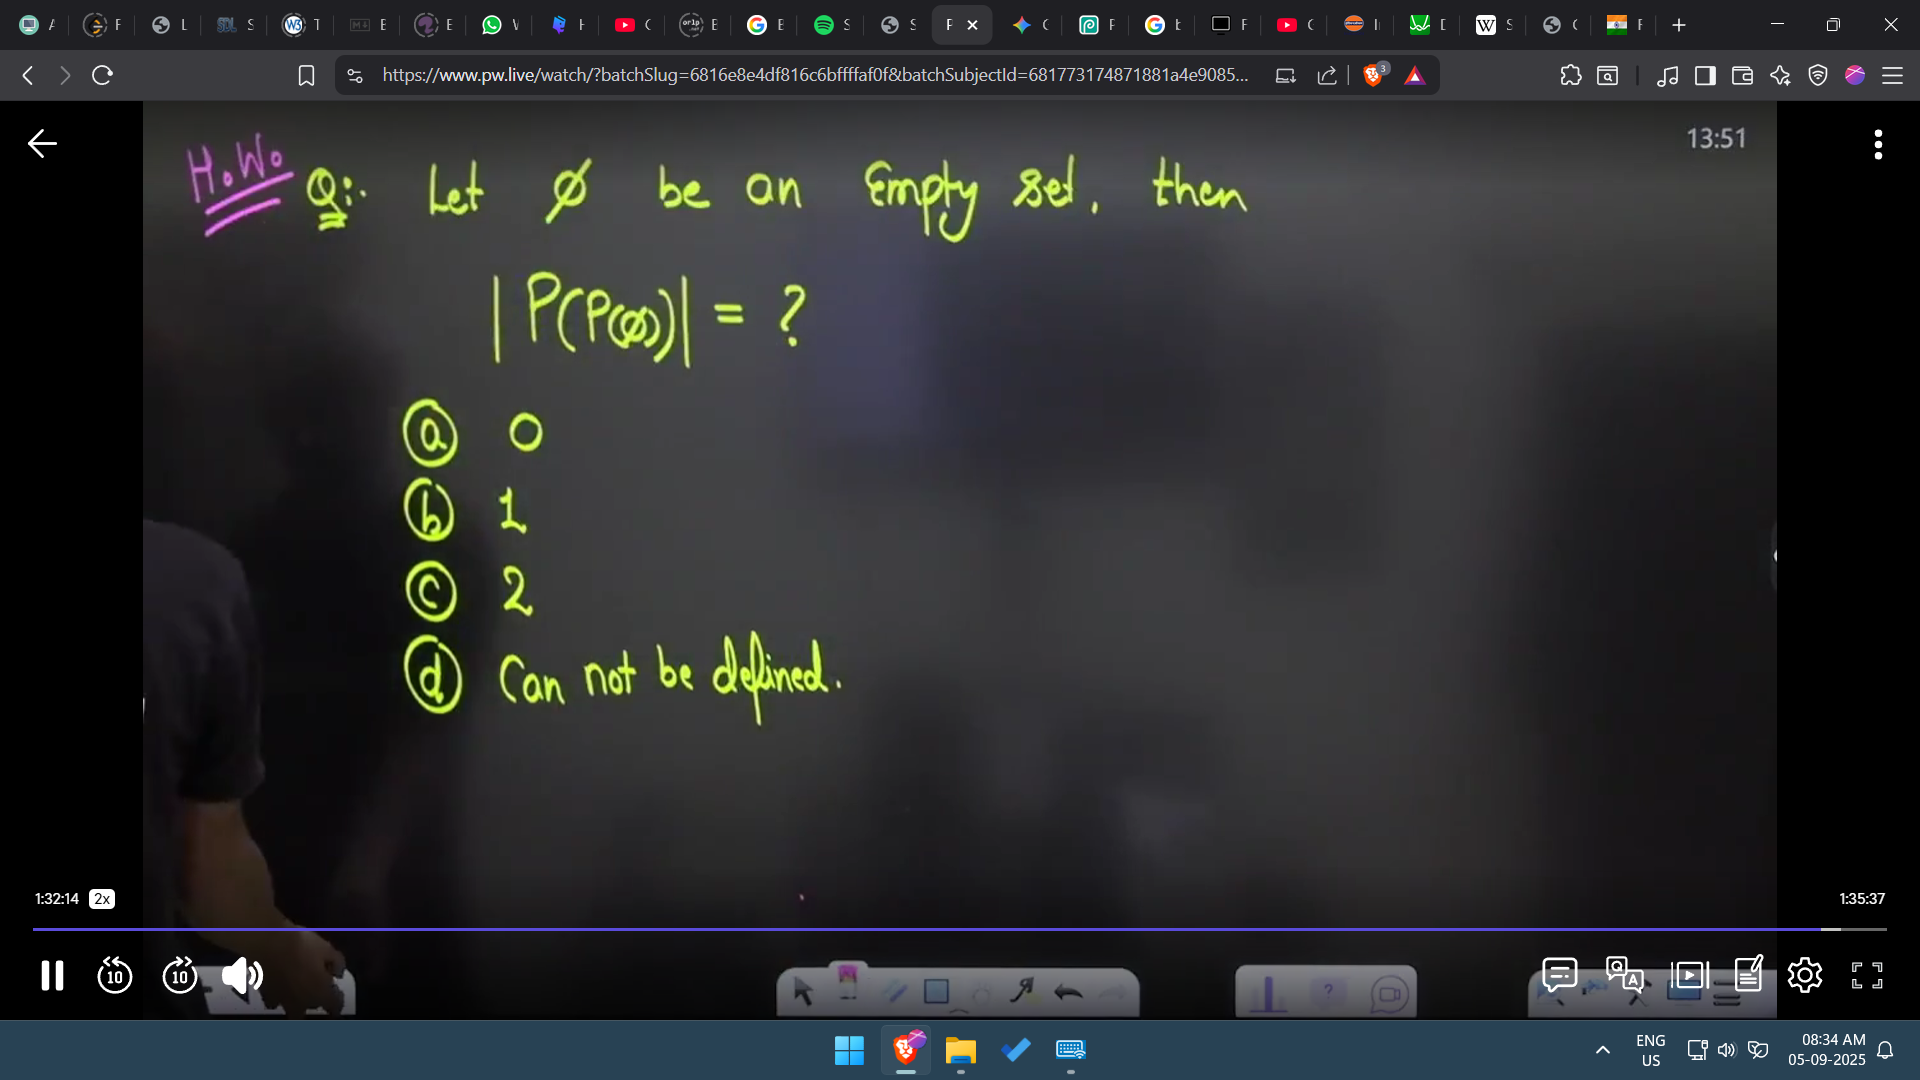 https://www.pw.live/watch/?batchSlug=6816e8e4df816c6bffffaf0f&batchSubjectId=681773174871881a4e9085...
3
13:51
H.W. Q:. Let ∅ be an Empty set, then
|P(P(∅))| = ?
(a) 0
(b) 1
(c) 2
(d) Can not be defined.
1:32:14 2x
1:35:37
10 10
ENG
US
08:34 AM
05-09-2025